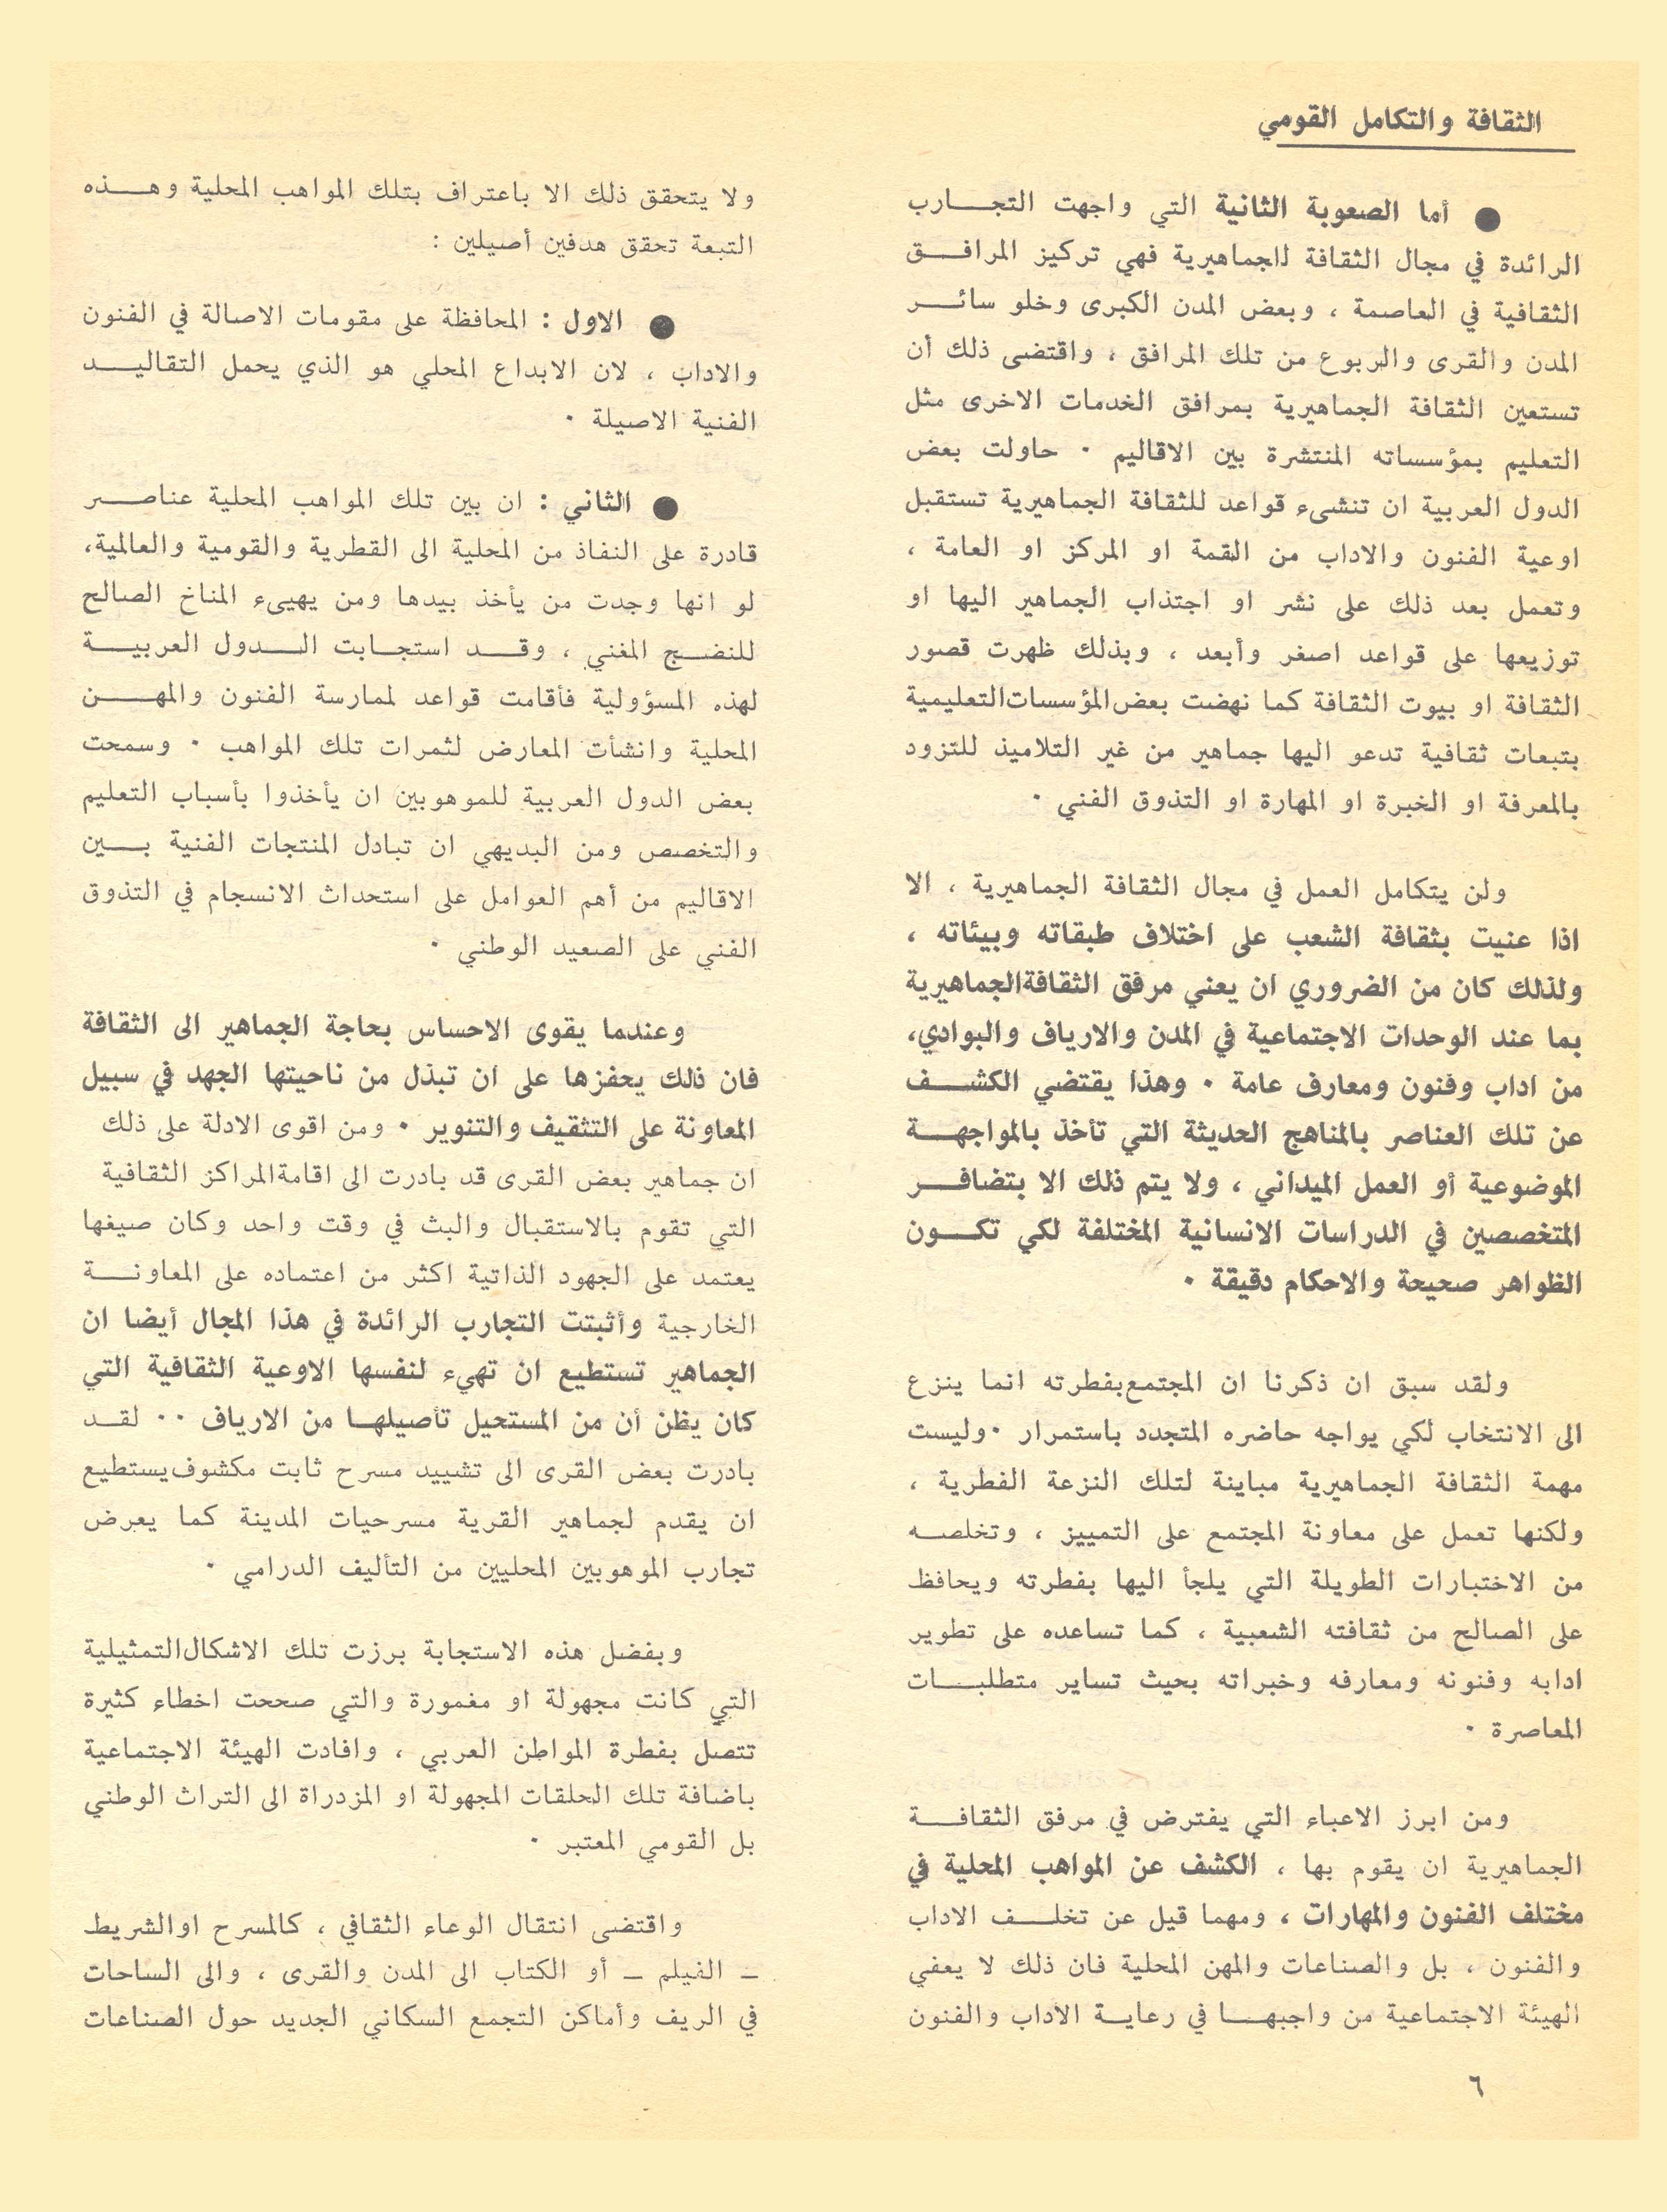 الثقافة والتكامل القومي
● أما الصعوبة الثانية التي واجهت التجارب
الرائدة في مجال الثقافة لاجماهيرية فهي تركيز المرافق
الثقافية في العاصمة ، وبعض المدن الكبرى وخلو سائر
المدن والقرى والربوع من تلك المرافق ، واقتضى ذلك أن
تستعين الثقافة الجماهيرية بمرافق الخدمات الاخرى مثل
التعليم بمؤسساته المنتشرة بين الاقاليم . حاولت بعض
الدول العربية ان تنشىء قواعد للثقافة الجماهيرية تستقبل
اوعية الفنون والاداب من القمة او المركز او العامة ،
وتعمل بعد ذلك على نشر او اجتذاب الجماهير اليها او
توزيعها على قواعد اصغر وأبعد ، وبذلك ظهرت قصور
الثقافة او بيوت الثقافة كما نهضت بعض المؤسسات التعليمية
بتبعات ثقافية تدعو اليها جماهير من غير التلاميذ للتزود
بالمعرفة او الخبرة او المهارة او التذوق الفني .
ولن يتكامل العمل في مجال الثقافة الجماهيرية ، الا
اذا عنيت بثقافة الشعب على اختلاف طبقاته وبيئاته ،
ولذلك كان من الضروري ان يعني مرفق الثقافة الجماهيرية
بما عند الوحدات الاجتماعية في المدن والارياف والبوادي،
من اداب وفنون ومعارف عامة . وهذا يقتضي الكشف
عن تلك العناصر بالمناهج الحديثة التي تأخذ بالمواجهة
الموضوعية أو العمل الميداني ، ولا يتم ذلك الا بتضافر
المتخصصين في الدراسات الانسانية المختلفة لكي تكون
الظواهر صحيحة والاحكام دقيقة .
ولقد سبق ان ذكرنا ان المجتمع بفطرته انما ينزع
الى الانتخاب لكي يواجه حاضره المتجدد باستمرار . وليست
مهمة الثقافة الجماهيرية مباينة لتلك النزعة الفطرية ،
ولكنها تعمل على معاونة المجتمع على التمييز ، وتخلصه
من الاختبارات الطويلة التي يلجأ اليها بفطرته ويحافظ
على الصالح من ثقافته الشعبية ، كما تساعده على تطوير
ادابه وفنونه ومعارفه وخبراته بحيث تساير متطلبات
المعاصرة .
ومن ابرز الاعباء التي يفترض في مرفق الثقافة
الجماهيرية ان يقوم بها ، الكشف عن المواهب المحلية في
مختلف الفنون والمهارات ، ومهما قيل عن تخلف الاداب
والفنون ، بل والصناعات والمهن المحلية فان ذلك لا يعفي
الهيئة الاجتماعية من واجبها في رعاية الاداب والفنون
ولا يتحقق ذلك الا باعتراف بتلك المواهب المحلية وهذه
التبعة تحقق هدفين أصيلين :
● الاول : المحافظة على مقومات الاصالة في الفنون
والاداب ، لان الابداع المحلي هو الذي يحمل التقاليد
الفنية الاصيلة .
● الثاني : ان بين تلك المواهب المحلية عناصر
قادرة على النفاذ من المحلية الى القطرية والقومية والعالمية،
لو انها وجدت من يأخذ بيدها ومن يهيىء المناخ الصالح
للنضج المغني ، وقد استجابت الدول العربية
لهذه المسؤولية فأقامت قواعد لممارسة الفنون والمهن
المحلية وانشأت المعارض لثمرات تلك المواهب . وسمحت
بعض الدول العربية للموهوبين ان يأخذوا بأسباب التعليم
والتخصص ومن البديهي ان تبادل المنتجات الفنية بين
الاقاليم من أهم العوامل على استحداث الانسجام في التذوق
الفني على الصعيد الوطني .
وعندما يقوى الاحساس بحاجة الجماهير الى الثقافة
فان ذلك يحفزها على ان تبذل من ناحيتها الجهد في سبيل
المعاونة على التثقيف والتنوير . ومن اقوى الادلة على ذلك
ان جماهير بعض القرى قد بادرت الى اقامة المراكز الثقافية
التي تقوم بالاستقبال والبث في وقت واحد وكان صيغها
يعتمد على الجهود الذاتية اكثر من اعتماده على المعاونة
الخارجية وأثبتت التجارب الرائدة في هذا المجال أيضا ان
الجماهير تستطيع ان تهيء لنفسها الاوعية الثقافية التي
كان يظن أن من المستحيل تأصيلها من الارياف .. لقد
بادرت بعض القرى الى تشييد مسرح ثابت مكشوف يستطيع
ان يقدم لجماهير القرية مسرحيات المدينة كما يعرض
تجارب الموهوبين المحليين من التأليف الدرامي .
وبفضل هذه الاستجابة برزت تلك الاشكال التمثيلية
التي كانت مجهولة او مغمورة والتي صححت اخطاء كثيرة
تتصل بفطرة المواطن العربي ، وافادت الهيئة الاجتماعية
باضافة تلك الحلقات المجهولة او المزدراة الى التراث الوطني
بل القومي المعتبر .
واقتضى انتقال الوعاء الثقافي ، كالمسرح او الشريط
ـ الفيلم ـ أو الكتاب الى المدن والقرى ، والى الساحات
في الريف وأماكن التجمع السكاني الجديد حول الصناعات
٦